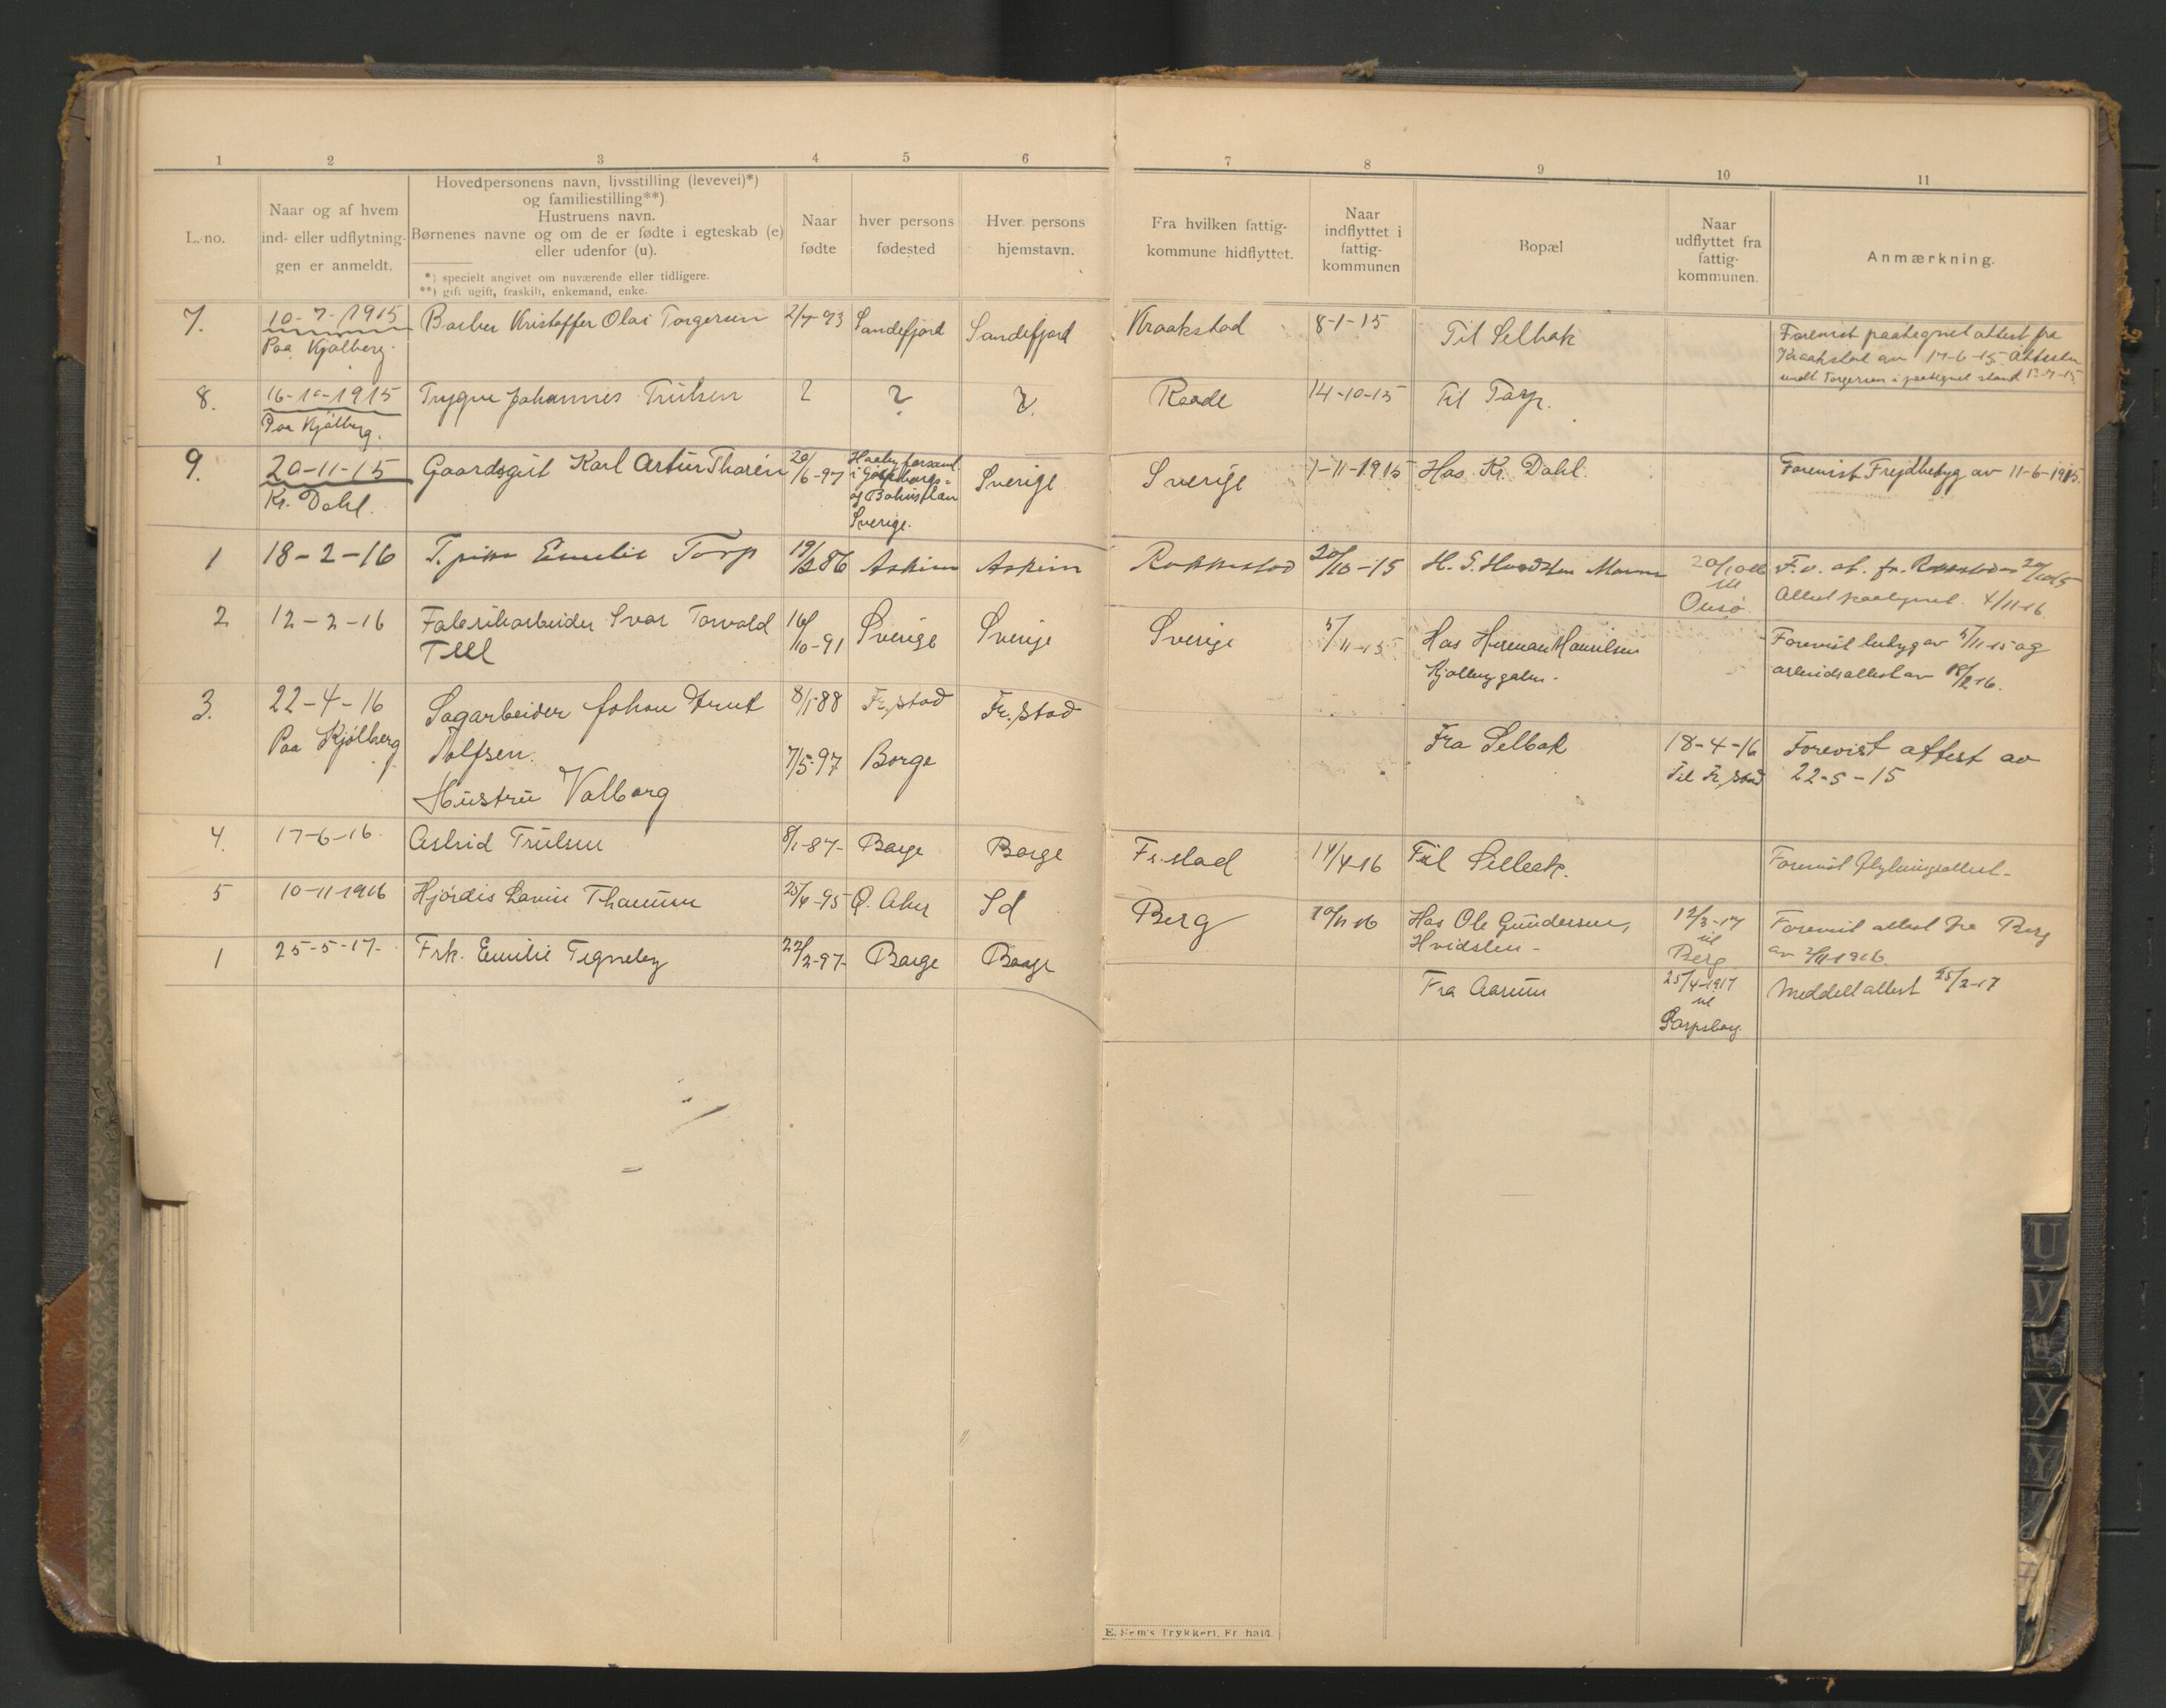 1 2 3 4 5 6 7 8 9 10 11
L.-no.
Naar og af hvem
ind- eller udflytnin-
gen er anmeldt.
Hovedpersonens navn, livsstilling (levevei)*)
og familiestilling**).
Hustruens navn.
Børnenes navne og om de er fødte i egteskab (e)
eller udenfor (u).
*) specielt angivet om nuværende eller tidligere.
**) gift ugift, fraskilt, enkemand, enke.
Naar
fødte
hver persons
fødested
Hver persons
hjemstavn.
Fra hvilken fattig-
kommune hidflyttet.
Naar
indflyttet i
fattig-
kommunen
Bopæl
Naar
udflyttet fra
fattig-
kommunen.
Anmærkning.
7. 10-7-1915 Barber Kristoffer Olai Torgersen 2/7-93 Sandefjord Sandefjord Kraakstad 8-1-15 Til Selbak Forevist paategnet attest fra
Paa Kjølberg. Kraakstad av 17-6-15 Attesten
sendt Torgersen i paategnet stand
8. 16-10-1915 Trygve Johannes Trulsen ? ? ? Raade 14-10-15 Til Torp.
Paa Kjølberg.
9. 20-11-15 Gaardsgut Karl Artur Tharén 20/6-97 Haaby forsaml. Sverige Sverige 1-11-1915 Hos Kr. Dahl. Forevist Frejdbetyg av 11-6-1915.
Kr. Dahl. i Gøteborgs-
og Bohuslän
Sverige.
1 18-2-16 T. pike Emilie Torp 19/2 86 Askim Askim Rakkestad 20/10-15 H. G. Hvidsten 20/10 16 F. v. at. fr. Rakkestad 20/10 15
til Attest paategnet. 4/11-16
Onsø
2 12-2-16 Fabrikarbeider Ivar Torvald 16/10-91 Sverige Sverige Sverige 5/11-15 Hos Herman Hansen Forevist betyg av 5/11-15 og
Tell Kjølberg galn. arbeidsattest av 18/2 16.
3. 22-4-16 Sagarbeider Johan Arnt 8/1-88 Fr.stad Fr.stad
Paa Kjölberg Tolfsen. 7/5-97 Borge Fra Selbak 18-4-16 Forevist attest av
Hustru Valborg Til Fr.stad 22-5-15
4. 17-6-16. Astrid Trulsen 8/1-87- Borge Borge Fr.stad 14/4-16 Til Selbak. Forevist flytningsattest.
5 10-11-1916 Hjørdis Lovise 25/4-95 Ø. Aker Sd Berg 10/11 16 Hos Ole Gundersen, 12/3-17 Forevist attest fra Berg
Hvidsten- til av 2/11-1916.
Berg
1 25-5-17- Frk. Emilie Tegneby 22/2-97- Borge Borge Fra Aarum 25/4-1917 Meddelt attest 25/2-17
til
Sarpsborg
E. Sem's Trykkeri, Fr.hald.
U
V
W
X
Y